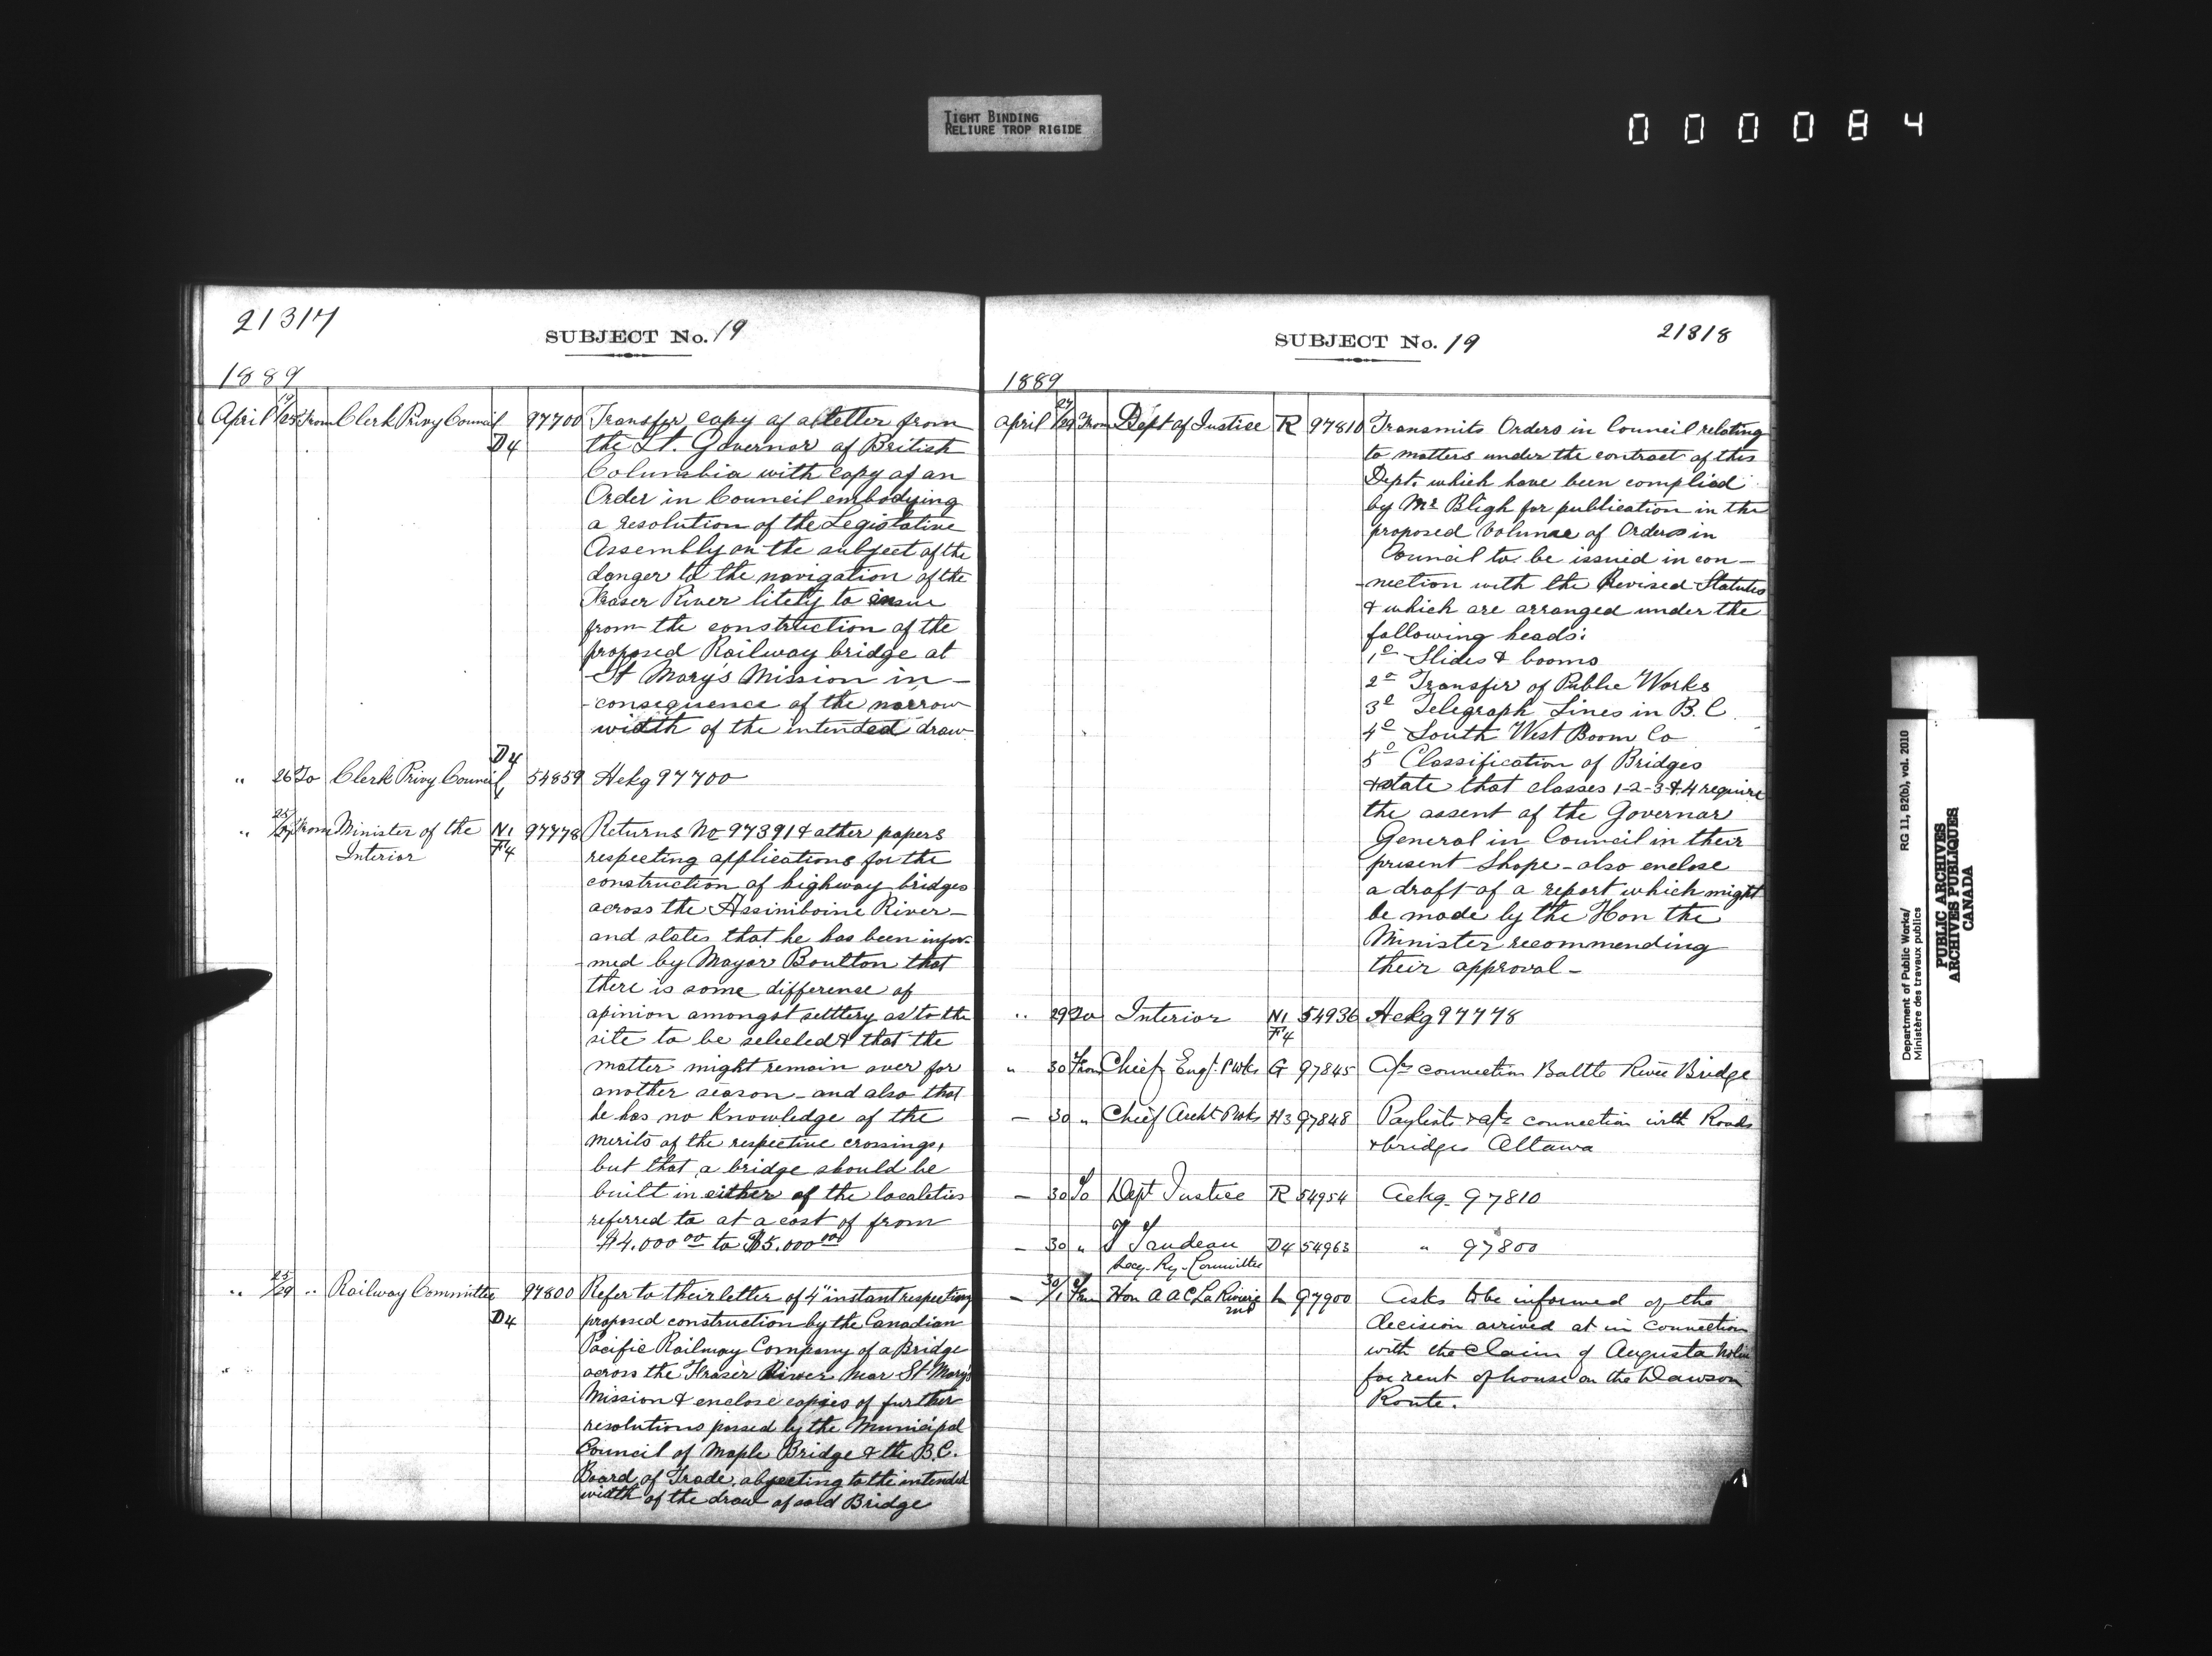 TIGHT BINDING
RELIURE TROP RIGIDE
000084
21317
SUBJECT No. 19
1889
April 19/25 From Clerk Privy Council D4 97700 Transfer copy of a letter from
the Lt. Governor of British
Columbia with copy of an
Order in Council embodying
a resolution of the Legislative
Assembly on the subject of the
danger to the navigation of the
Fraser River likely to ensue
from the construction of the
proposed Railway bridge at
St Mary's Mission in
-consequence of the narrow
width of the intended draw
" 26 To Clerk Privy Council D4 54859 Ackg 97700
" 25/27 From Minister of the N1 97778 Returns No 97391 & other papers
Interior F4 respecting applications for the
construction of highway bridges
across the Assiniboine River-
and states that he has been infor-
-med by Mayor Boulton that
there is some difference of
opinion amongst settlers as to the
site to be selected & that the
matter might remain over for
another season - and also that
he has no knowledge of the
merits of the respective crossings,
but that a bridge should be
built in either of the localities
referred to at a cost of from
$4.000 00 to $5.000 00
" 25/29 " Railway Committee D4 97800 Refer to their letter of 4" instant respecting
proposed construction by the Canadian
Pacific Railway Company of a Bridge
across the Fraser River near St Mary's
Mission & enclose copies of further
resolutions passed by the Municipal
Council of Maple Bridge & the B.C.
Board of Trade, objecting to the intended
width of the draw of said Bridge
SUBJECT No. 19
21318
1889
April 27/29 From Dept of Justice R 97810 Transmits Orders in Council relating
to matters under the contract of this
Dept. which have been compliod
by Mr Bligh for publication in the
proposed volume of Orders in
Council to be issued in con-
-nection with the Revised Statutes
& which are arranged under the
following heads:
1o Slides & booms
2o Transfer of Public Works
3o Telegraph Lines in B.C.
4o South West Boom Co
5o Classification of Bridges
& state that classes 1-2-3 & 4 require
the assent of the Governor
General in Council in their
present shape - also enclose
a draft of a report which might
be made by the Hon the
Minister recommending
their approval -
" 29 To Interior N1 F4 54936 Ackg 97778
" 30 From Chief Engr. P Wks G 97845 a/cs connection Battle River Bridge
- 30 " Chief Archt P Wks H3 97848 Paylists & a/cs connection with Roads
& bridges Ottawa
- 30 To Dept Justice R 54954 Ackg. 97810
- 30 " T Trudeau D4 54963 " 97800
Secy. Ry. Committee
- 30/1 From Hon A A C La Riviere L 97900 Asks to be informed of the
MP
decision arrived at in connection
with the claim of Augusta Nolin
for rent of house on the Dawson
Route.
Department of Public Works/ RG 11, B2(b), vol. 2010
Ministère des travaux publics
PUBLIC ARCHIVES
ARCHIVES PUBLIQUES
CANADA